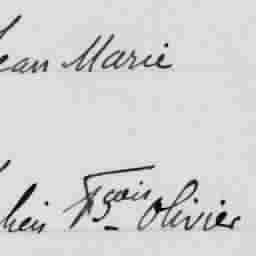 Jean Marie
lien Fçois Olivier